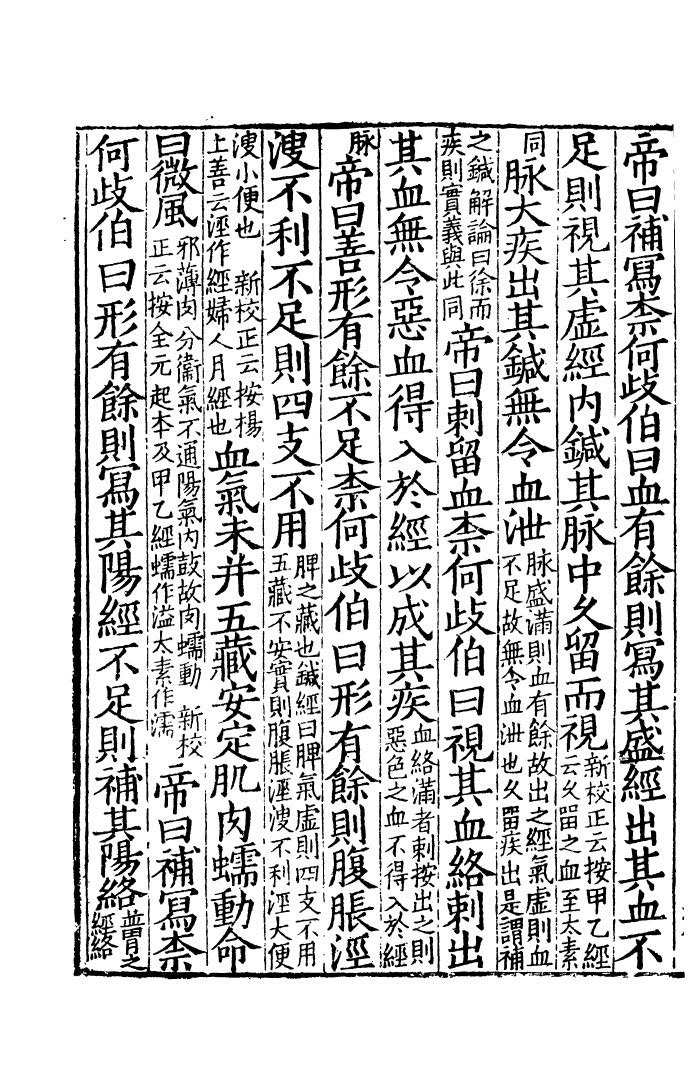 帝曰補寫柰何歧伯曰血有餘則寫其盛經出其血不
足則視其虛經內鍼其脉中久留而視新校正云按甲乙經云久留之血至太素
同脉大疾出其鍼無令血泄脉盛滿則血有餘故出之經氣虛則血不足故無令血泄也久留疾出是謂補
之鍼解論曰徐而疾則實義與此同帝曰刺留血柰何歧伯曰視其血絡刺出
其血無令惡血得入於經以成其疾血絡滿者刺按出之則惡色之血不得入於經
脉帝曰善形有餘不足柰何歧伯曰形有餘則腹脹涇
溲不利不足則四支不用脾之藏也鍼經曰脾氣虛則四支不用五藏不安實則腹脹涇溲不利涇大便
溲小便也 新校正云按楊上善云涇作經婦人月經也血氣未并五藏安定肌肉蠕動命
曰微風邪薄肉分衞氣不通陽氣內鼓故肉蠕動 新校正云按全元起本及甲乙經蠕作溢太素作濡帝曰補寫柰
何歧伯曰形有餘則寫其陽經不足則補其陽絡並胃之經絡